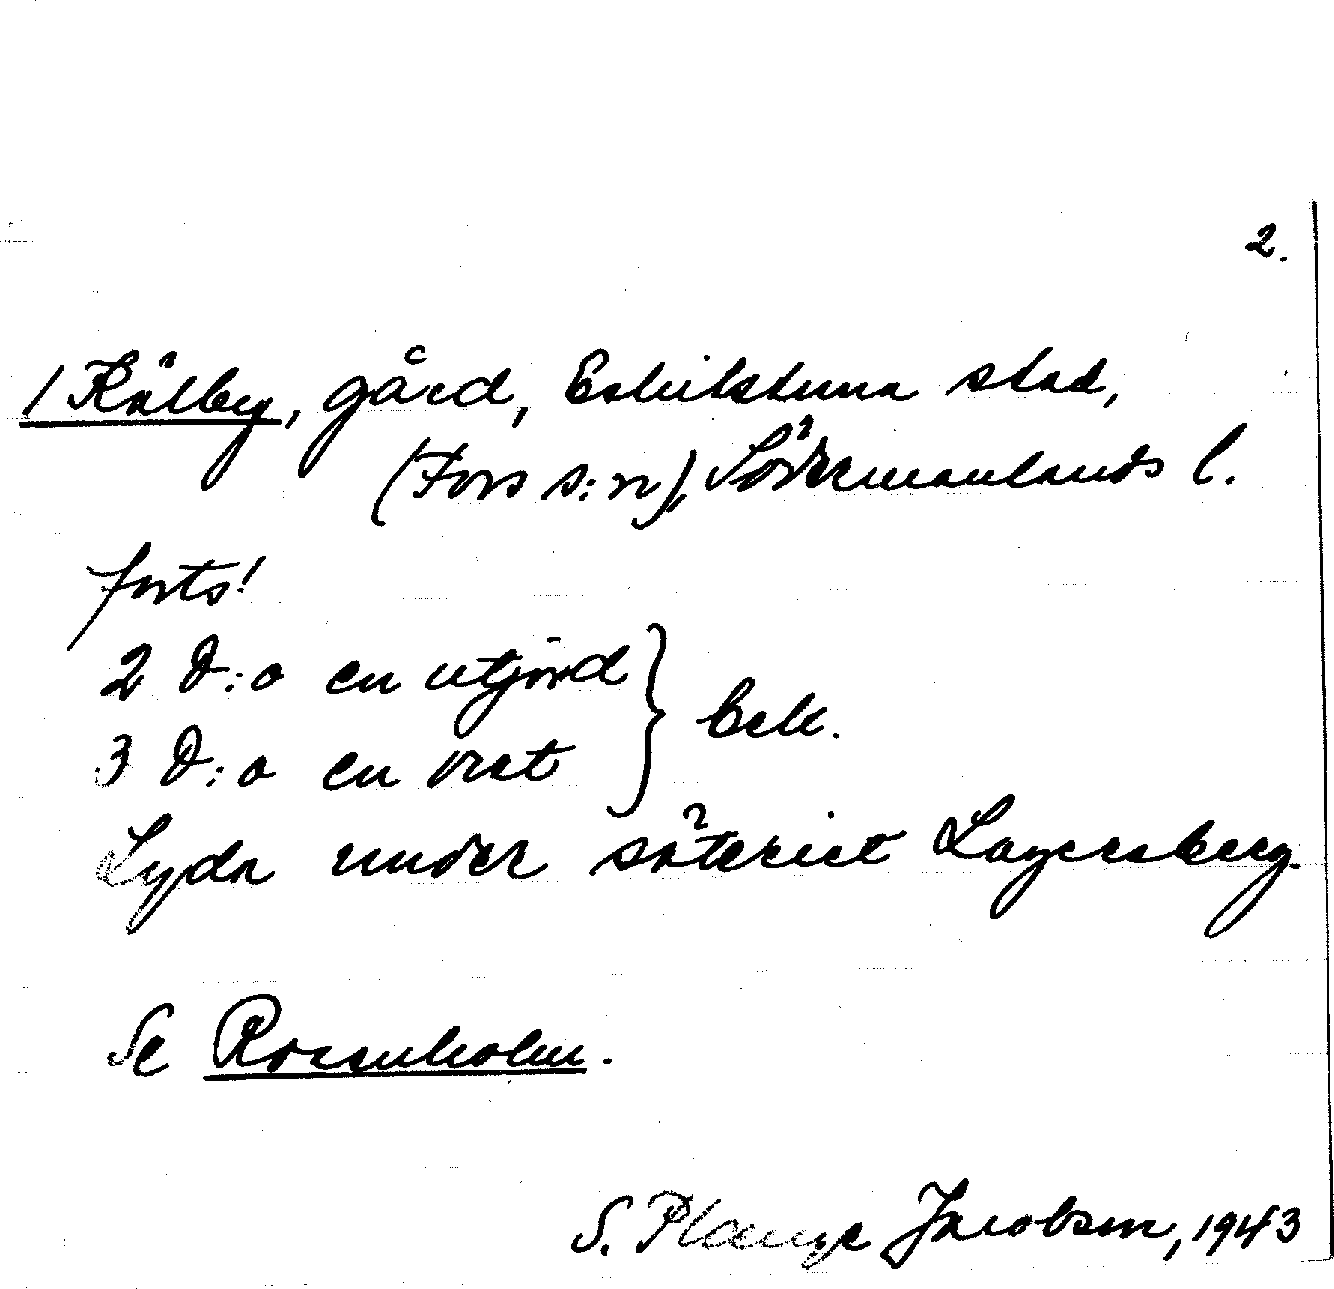 2.
1 Kälby, gård, Eskilstuna stad,
(Fors s:n), Södermanlands l.
forts!
2 D:o en utjord } bek.
3 D:o en vret
Lyda under säteriet Lagersberg.
Se Rosenholm.
S. Plange Jacobson, 1943